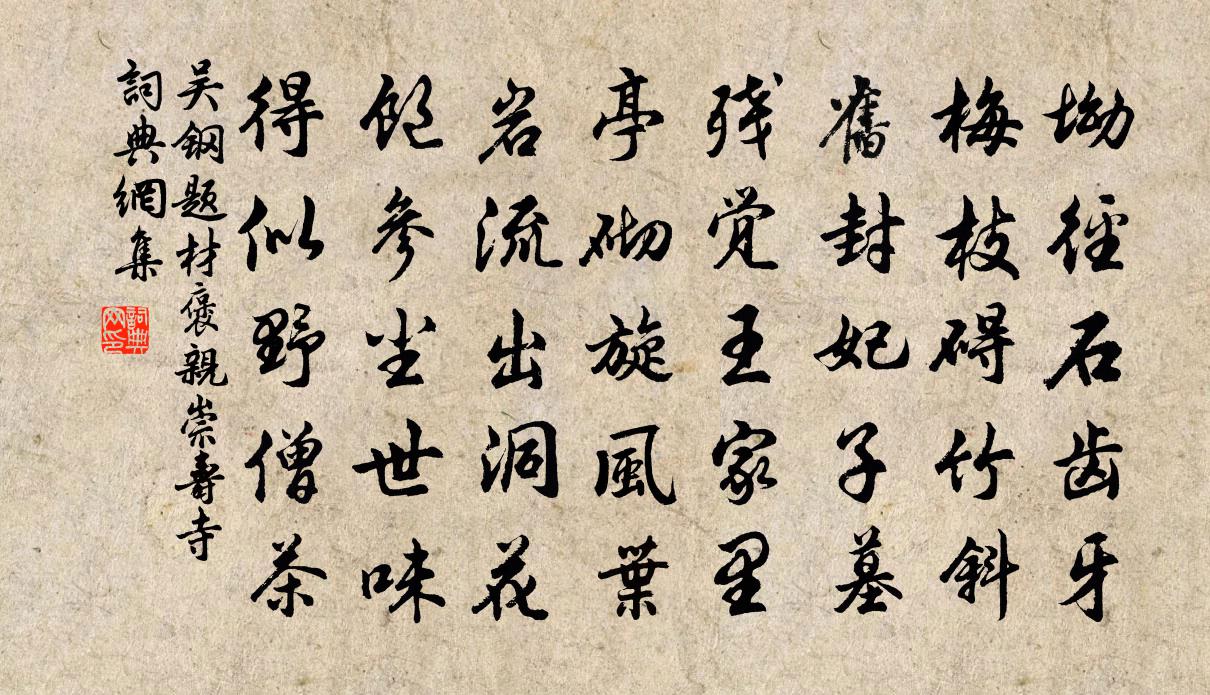 坳徑石齿牙
梅枝碍竹斜
舊封妃子墓
残觉王家里
亭砌旋風葉
岩流出洞花
飽參尘世味
得似野僧茶
吴鋼题材褒親崇壽寺
詞典網集
詞典
网印